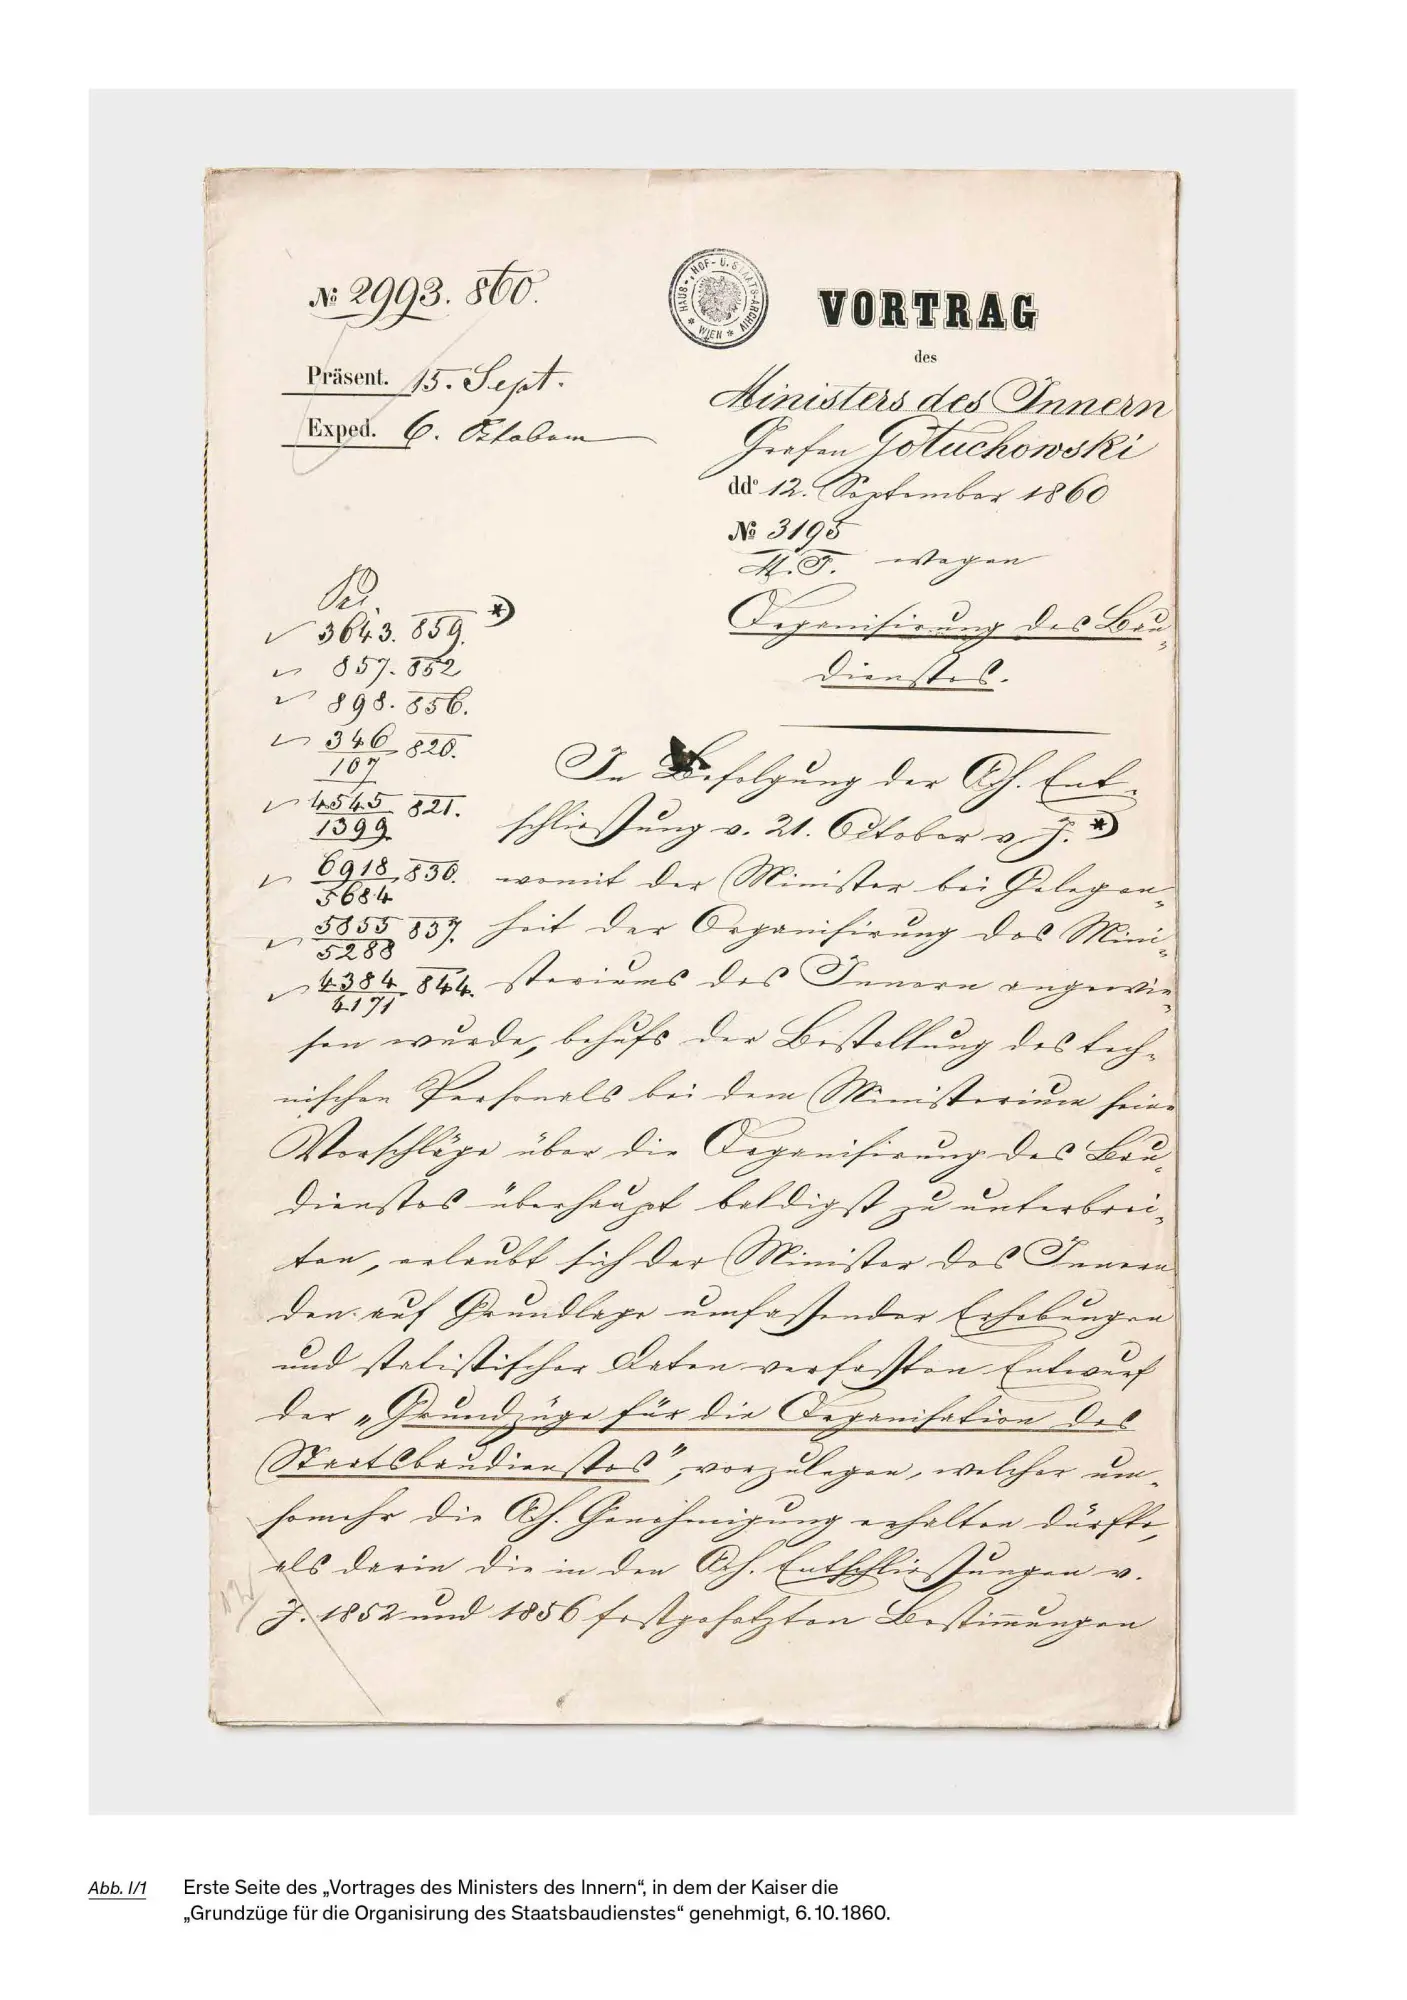 № 2993. 860.
Präsent. 15. Sept.
Exped. 6. Oktober
HAUS-, HOF- U. STAATS-ARCHIV
* WIEN *
VORTRAG
des
Ministers des Innern
Grafen Gołuchowski
ddº 12. September 1860
№ 3195
M. I. wegen
Organisirung des Bau-
dienstes.
Pri.
3643. 859. *)
857. 852
898. 856.
346/107 820.
4545/1399 821.
6918/5684 830.
5855/5288 837.
4384/4171 844.
In Befolgung der Ah. Ent-
schließung v. 21. October v. J. *)
womit der Minister bei Gelegen-
heit der Organisirung des Mini-
steriums des Innern angewie-
sen wurde, behufs der Bestellung des tech-
nischen Personals bei dem Ministerium seine
Vorschläge über die Organisirung des Bau-
dienstes überhaupt baldigst zu unterbrei-
ten, erlaubt sich der Minister des Innern
den auf Grundlage umfassender Erhebungen
und statistischer Daten verfaßten Entwurf
der „Grundzüge für die Organisation des
Staatsbaudienstes", vorzulegen, welcher um-
somehr die Ah. Genehmigung erhalten dürfte,
als darin die in den Ah. Entschließungen v.
J. 1852 und 1856 festgesetzten Bestimmungen
Abb. I/1 Erste Seite des „Vortrages des Ministers des Innern“, in dem der Kaiser die
„Grundzüge für die Organisirung des Staatsbaudienstes“ genehmigt, 6.10.1860.